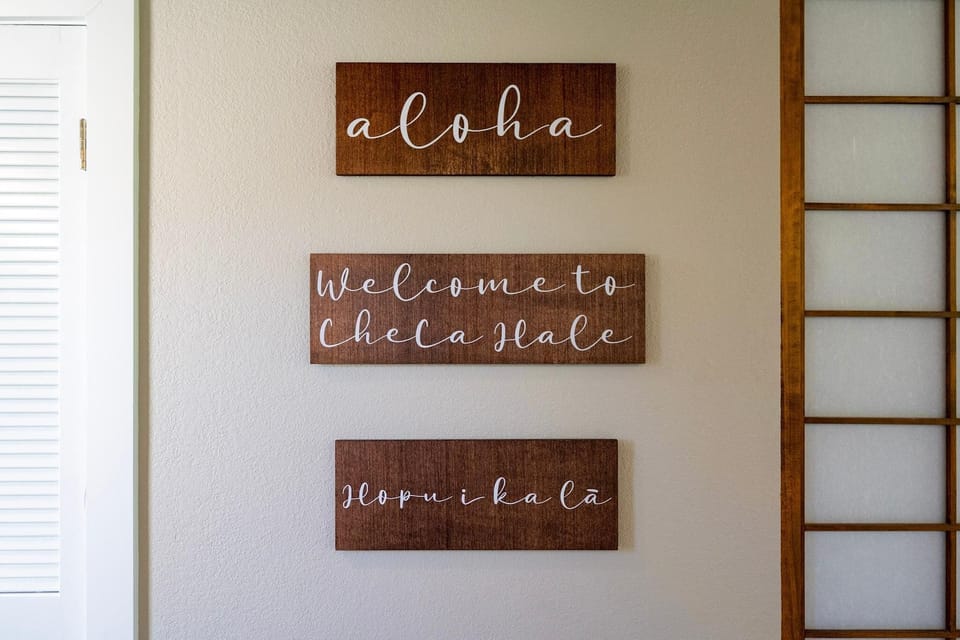 aloha
Welcome to
CheCa Hale
Hopu i ka lā